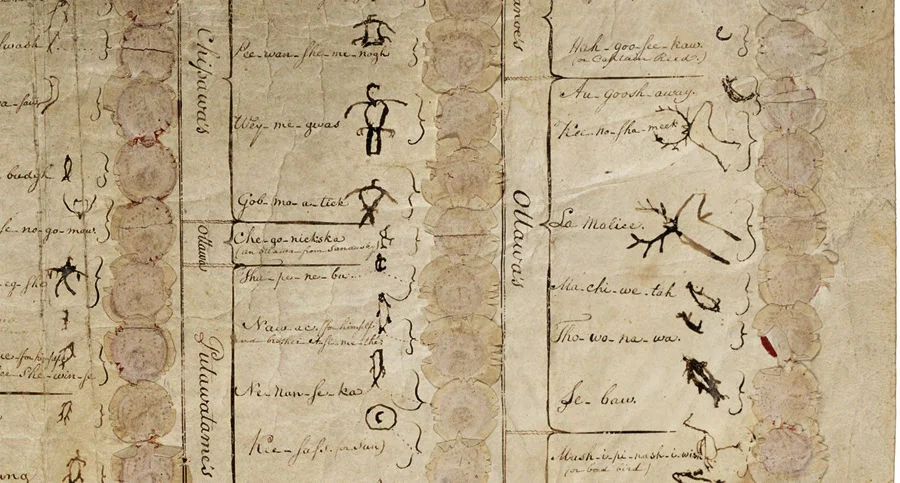 lwash
a-saw
budgh
se-no-go-maw.
eg-sho
ee She-win-se
ng
Chipawa's
Pee-wan-she-me-nogh
Wey-me-gwas
Gob-mo-a-tick
Ottawa
Che-go-nickska
(an ottawa from Sandusky)
Putawatame's
Thu-pe-ne-bu.
Naw-ac. (for himself
and brother Etsi-me-the)
Ne-nan-se-ka
Kee-sass. or sun)
anoe's
Hah-goo-see-kaw.
(or Captain Reed.)
Ottawa's
Au-goosh-away.
Kee-no-sha-meek
La Malice.
Ma-chi-we-tah
Tho-wo-na-wa.
Se-baw.
Mash-i-pi-nash-i-wish
(or bad bird)